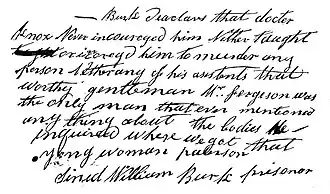 — Burk deaclars that docter
Knox Never incoureged him Nither taught
or incoreged him to murder any
person Nither any of his asistants that
worthy gentleman Mr. Fergeson was
the only man that ever mentioned
any thing about the bodies He
inquired where we got that
yong woman paterson
Sined William Burk prisoner